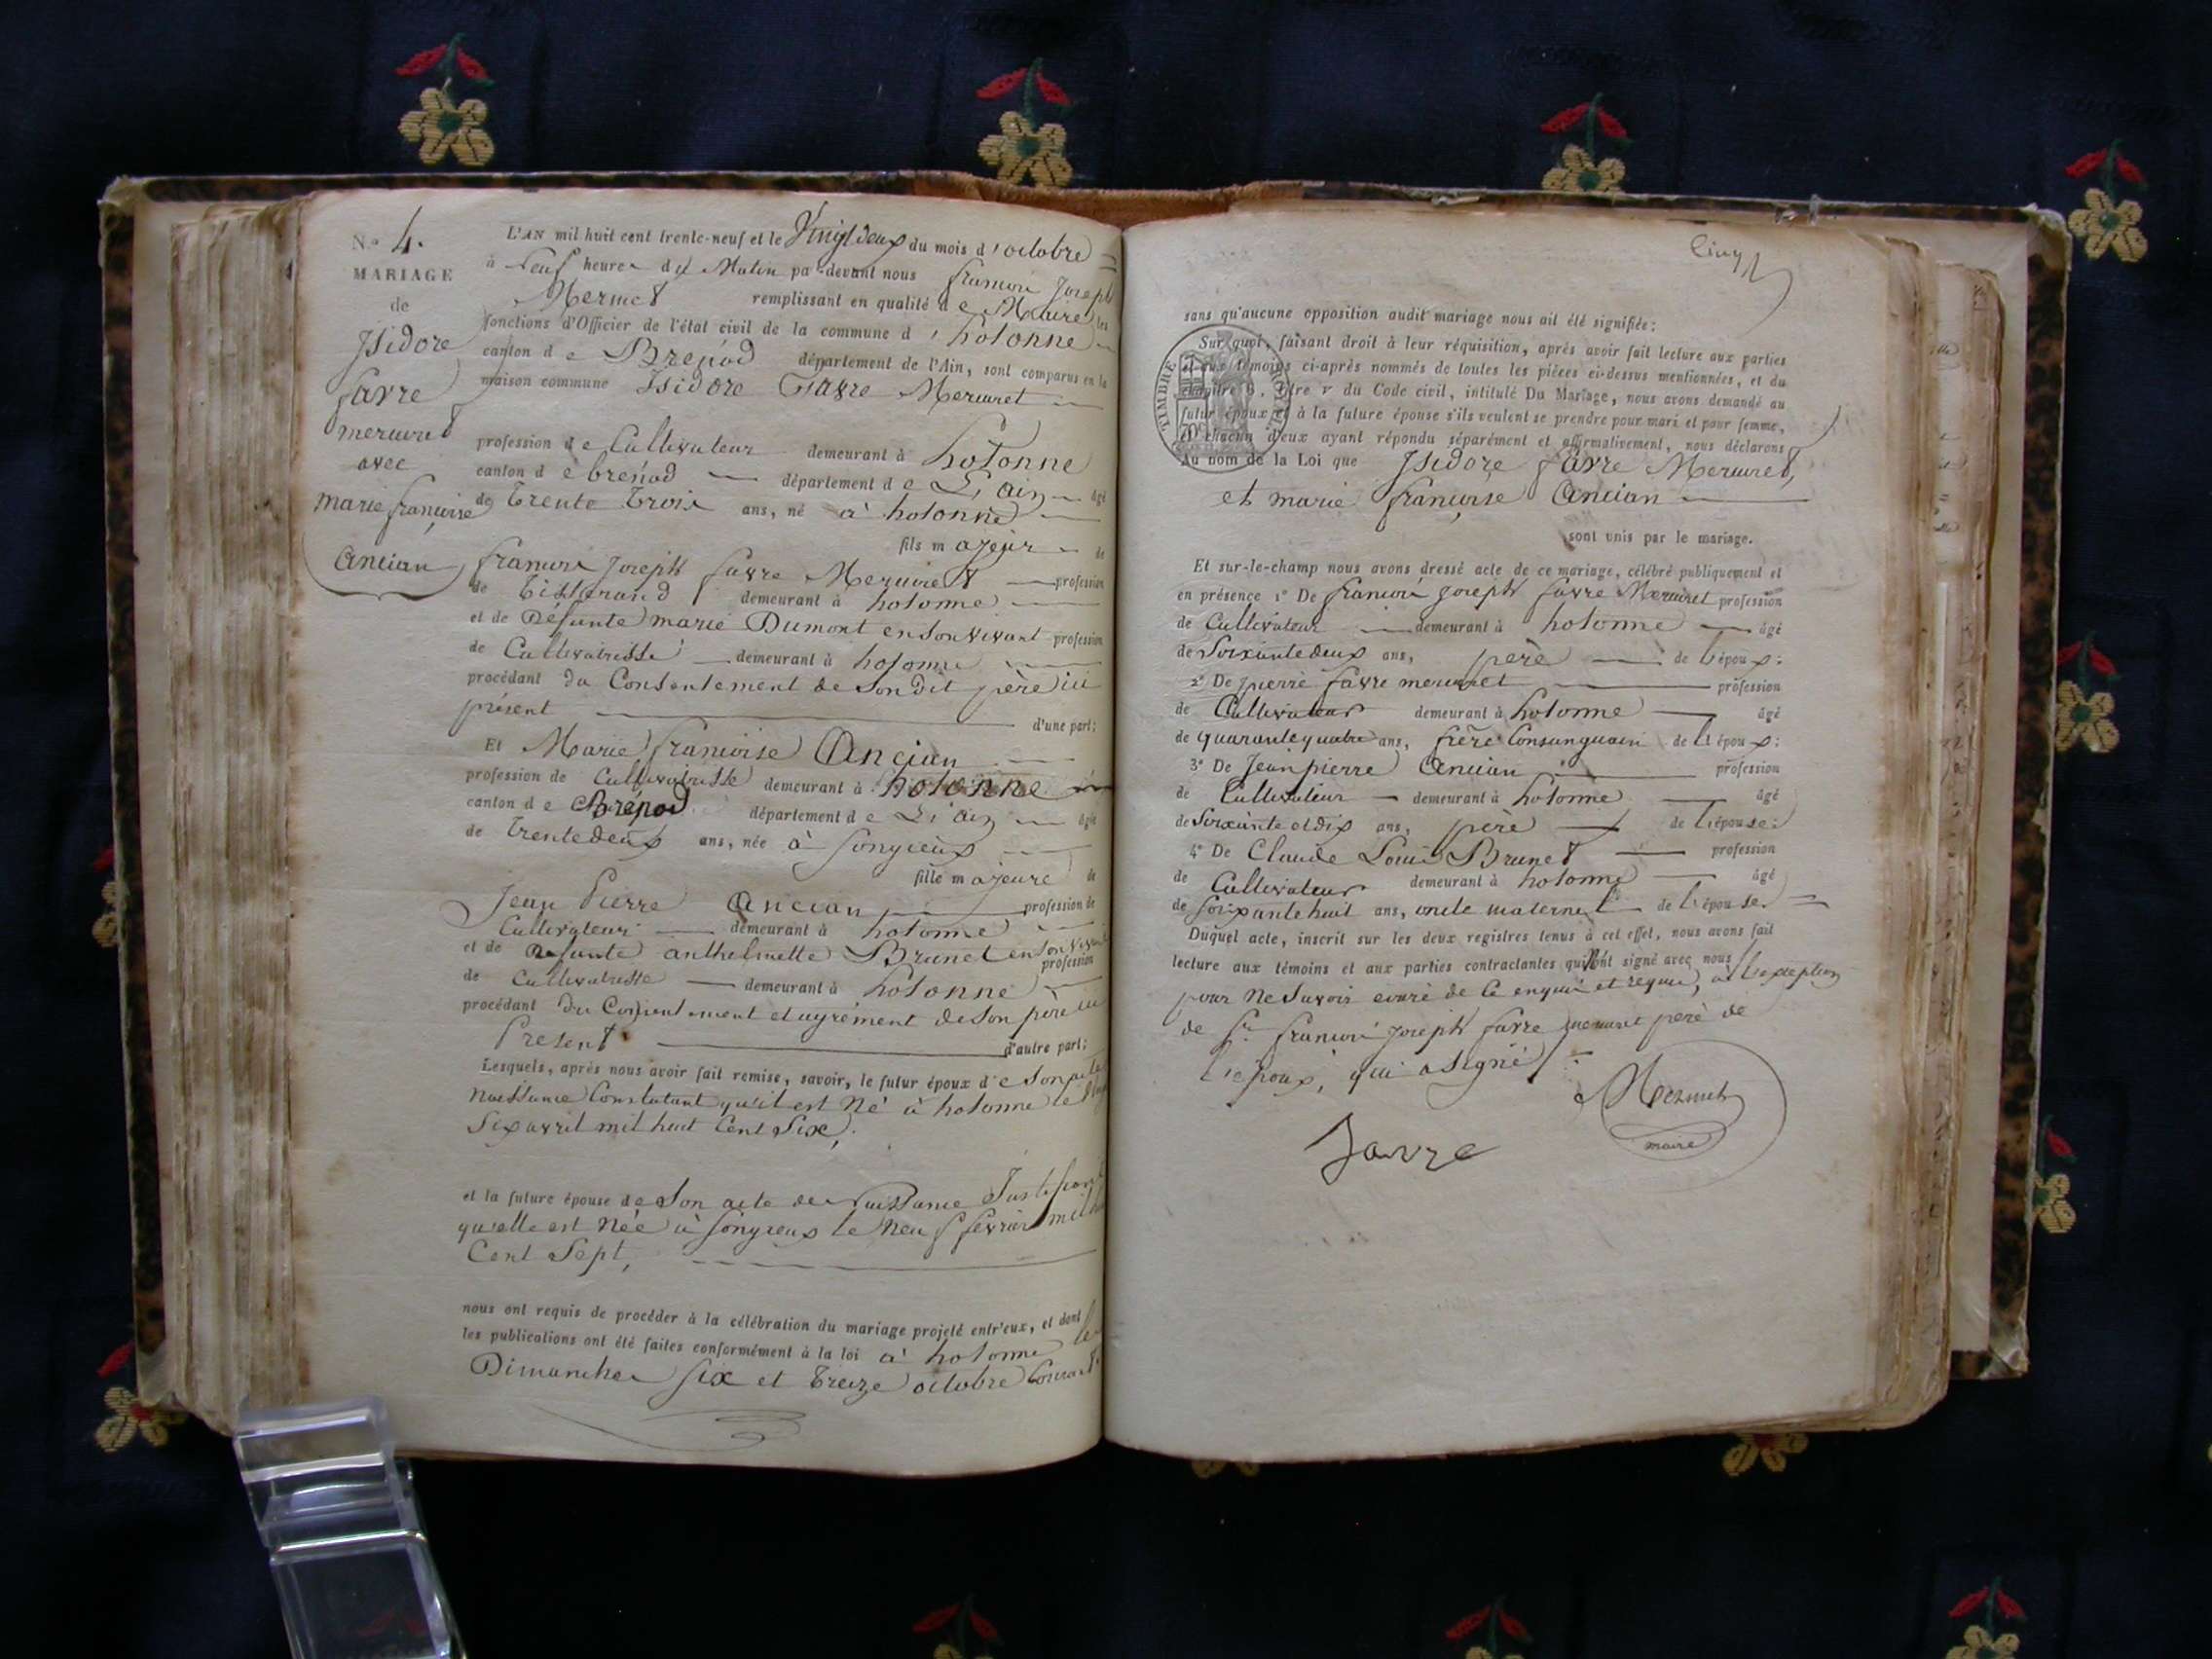 N.º 4.
MARIAGE
de
Isidore
favre
mercuret
avec
marie francoise
Ancian
L'AN mil huit cent trente-neuf et le Vingt deux du mois d'octobre
à neuf heures du Matin par-devant nous francois Joseph
Mermet remplissant en qualité de Maire les
fonctions d'Officier de l'état civil de la commune d'hotonne
canton de Brenod département de l'Ain, sont comparus en la
maison commune Isidore Favre Mercuret
profession de Cultivateur demeurant à hotonne
canton de brenod département de L'ain âgé
de trente trois ans, né à hotonne
fils majeur de
francois Joseph favre Mercuret profession
de tisserand demeurant à hotonne
et de Défunte marie Dumont en son vivant profession
de Cultivatrisse demeurant à hotonne
procédant du Consentement de son dit père ici
présent d'une part;
Et Marie francoise Ancian
profession de Cultivatrisse demeurant à hotonne
canton de Brénod département de L'ain âgée
de trente deux ans, née à songieux
fille majeure de
Jean Pierre Ancian profession de
Cultivateur demeurant à hotonne
et de defunte anthelmette Brunet en son vivant
profession
de Cultivatrisse demeurant à hotonne
procédant du Consentement et agrement de son père ici
Present d'autre part;
Lesquels, après nous avoir fait remise, savoir, le futur époux de son acte
naissance Constatant qu'il est né à hotonne le
six avril mil huit Cent six,
et la future épouse de son acte de naissance Justifiant
qu'elle est née à songieux le neuf fevrier mil
Cent sept,
nous ont requis de procéder à la célébration du mariage projeté entr'eux, et dont
les publications ont été faites conformément à la loi à hotonne les
Dimanches six et treize octobre Courant
sans qu'aucune opposition audit mariage nous ait été signifiée:
TIMBRE ROYAL
Sur quoi, faisant droit à leur réquisition, après avoir fait lecture aux parties
et aux témoins ci-après nommés de toutes les pièces ci-dessus mentionnées, et du
chapitre 6, titre v du Code civil, intitulé Du Mariage, nous avons demandé au
futur époux et à la future épouse s'ils veulent se prendre pour mari et pour femme,
et chacun d'eux ayant répondu séparément et affirmativement, nous déclarons
Au nom de la Loi que Isidore favre Mercuret,
et marie francoise Ancian
sont unis par le mariage.
Et sur-le-champ nous avons dressé acte de ce mariage, célébré publiquement et
en présence 1º De francois joseph favre Mercuret profession
de Cultivateur demeurant à hotonne âgé
de soixante deux ans, père de l'époux:
2º De pierre favre mercuret profession
de Cultivateur demeurant à hotonne âgé
de quarante quatre ans, frère Consanguain de l'époux:
3º De Jean pierre Ancian profession
de Cultivateur demeurant à hotonne âgé
de soixante et dix ans, père de l'épouse:
4º De Claude Louis Brunet profession
de Cultivateur demeurant à hotonne âgé
de soixante huit ans, oncle maternel de l'épouse.
Duquel acte, inscrit sur les deux registres tenus à cet effet, nous avons fait
lecture aux témoins et aux parties contractantes qui n'ont signé avec nous
pour ne savoir ecrire de Ce enquis et requis, à l'exception
de Sr francois joseph favre mercuret père de
l'epoux, qui a signé
Mermet
maire
favre